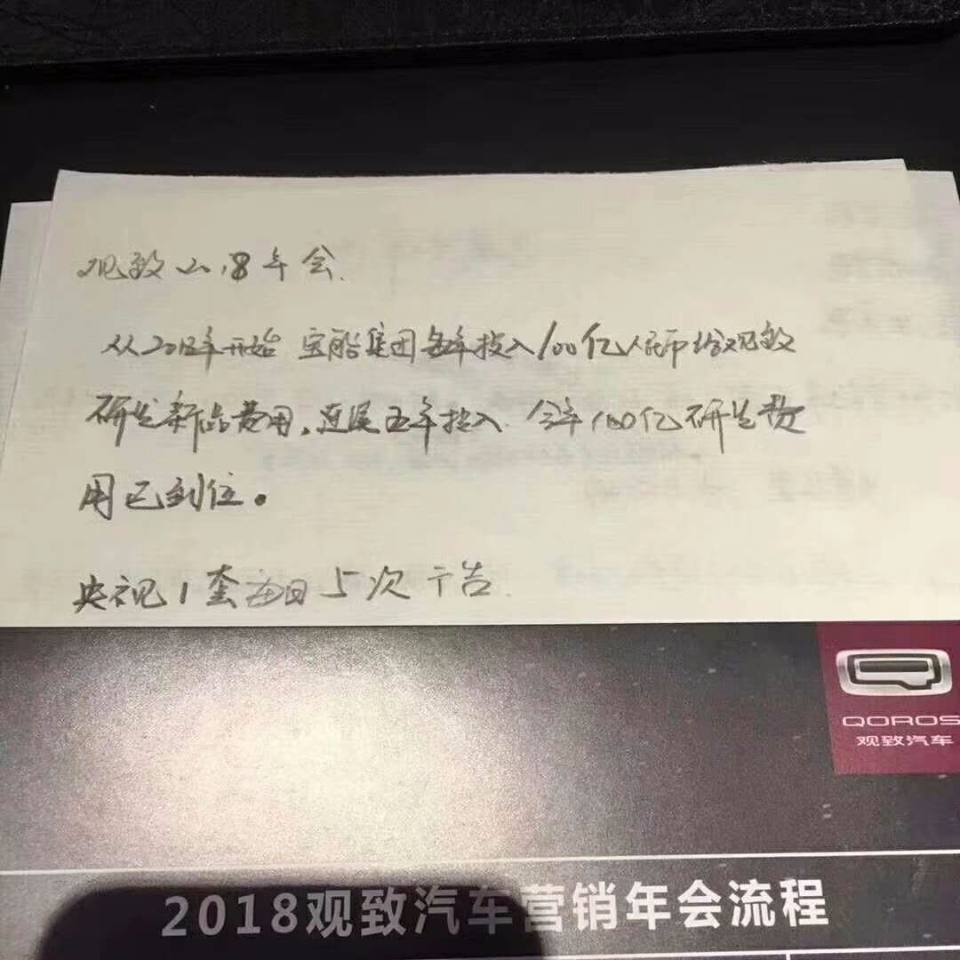 观致2018年会.
从2018年开始 宝能集团每年投入100亿人民币给观致
研发新品费用,连续五年投入.今年100亿研发费
用已到位。
央视1套每日5次广告.
QOROS
观致汽车
2018观致汽车营销年会流程